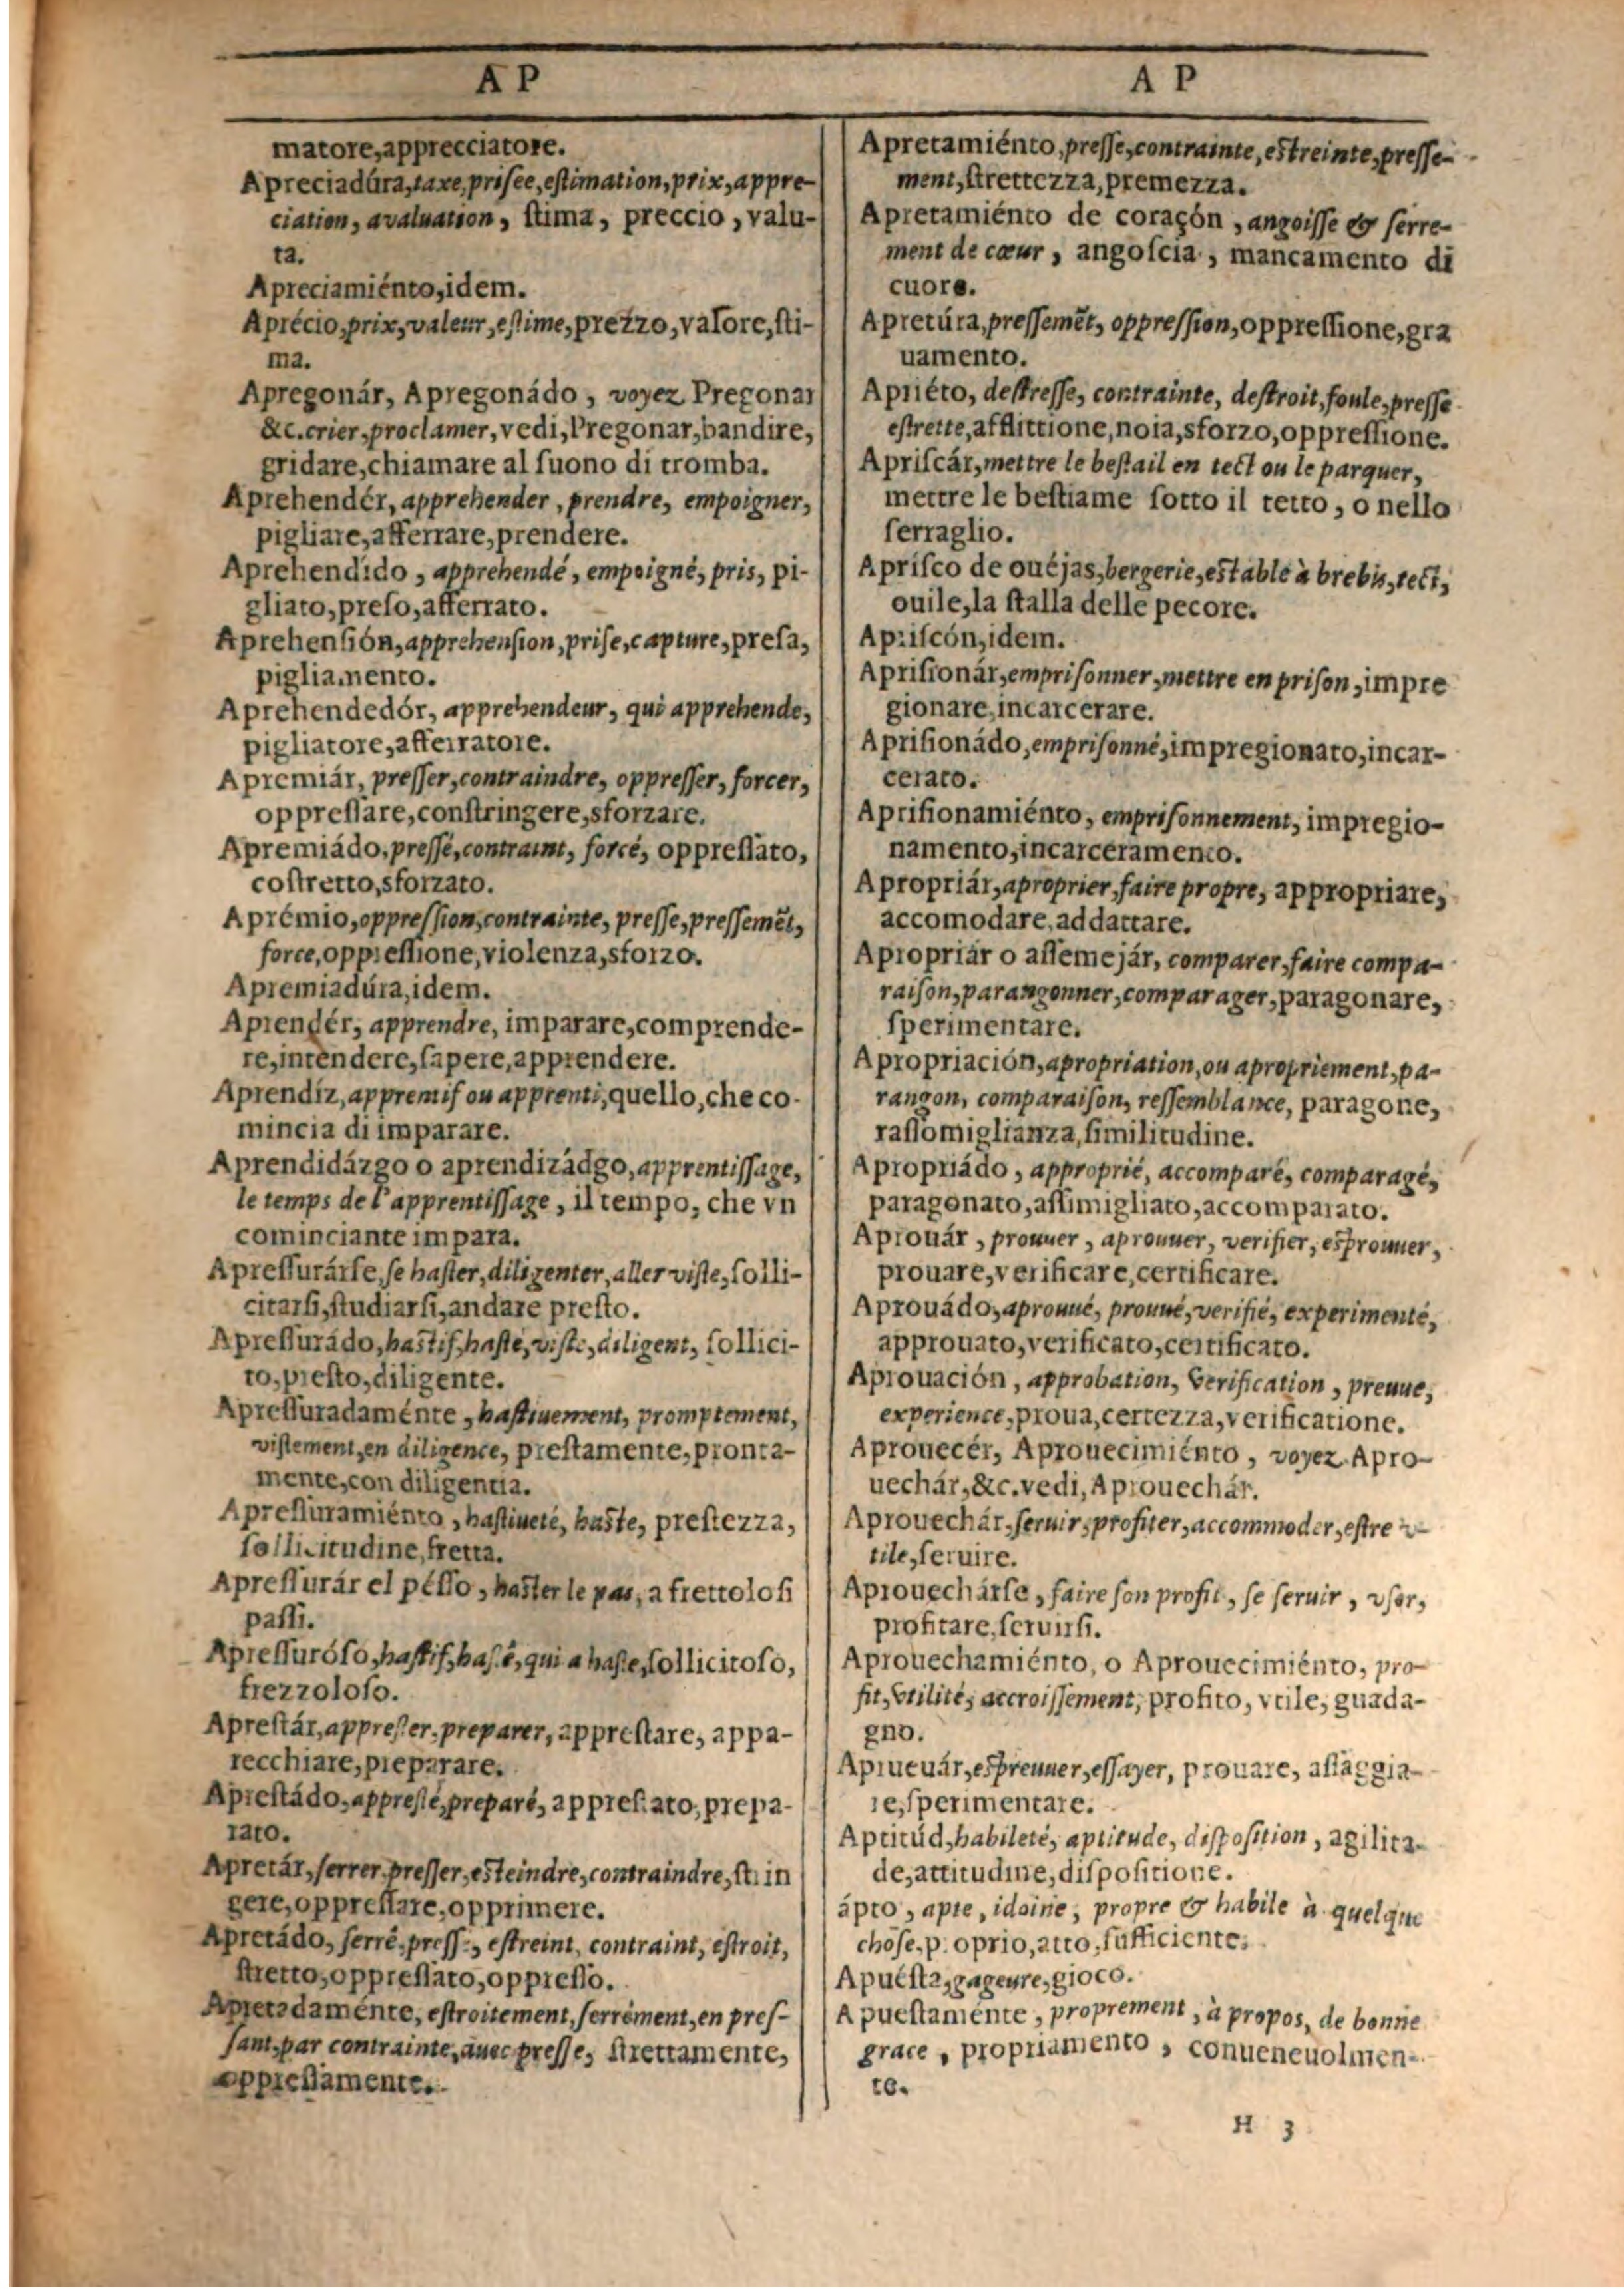 A P
matore,apprecciatore.
Apreciadúra,taxe,prisee,estimation,prix,appre-
ciation, avaluation, ſtima, preccio, valu-
ta.
Apreciamiénto,idem.
Aprécio,prix,valeur,estime,prezzo,valore,ſti-
ma.
Apregonár, Apregonádo, voyez Pregonar
&c.crier,proclamer,vedi,Pregonar,bandire,
gridare,chiamare al ſuono di tromba.
Aprehendér, apprehender, prendre, empoigner,
pigliare,afferrare,prendere.
Aprehendido, apprehendé, empoigné, pris, pi-
gliato,preſo,afferrato.
Aprehenſión,apprehenſion,priſe,capture,preſa,
pigliamento.
Aprehendedór, apprehendeur, qui apprehende,
pigliatore,afferratore.
Apremiár, preſſer,contraindre, oppreſſer, forcer,
oppreſſare,conſtringere,sforzare.
Apremiádo,preſſé,contraint, forcé, oppreſſato,
coſtretto,sforzato.
Aprémio,oppreſſion,contrainte, preſſe,preſſemẽt,
force,oppreſſione,violenza,sforzo.
Apremiadúra,idem.
Aprendér, apprendre, imparare,comprende-
re,intendere,ſapere,apprendere.
Aprendíz,apprentif ou apprenti,quello,che co-
mincia di imparare.
Aprendidázgo o aprendizádgo,apprentiſſage,
le temps de l'apprentiſſage, il tempo, che vn
cominciante impara.
Apreſſurárſe,ſe haſter,diligenter,aller viſte,ſolli-
citarſi,ſtudiarſi,andare preſto.
Apreſſurádo,haſtif,haſté,viſte,diligent, ſollici-
to,preſto,diligente.
Apreſſuradaménte, haſtiuement, promptement,
viſtement,en diligence, preſtamente,pronta-
mente,con diligentia.
Apreſſuramiénto, haſtiueté, haſte, preſtezza,
ſollicitudine,fretta.
Apreſſurár el péſſo, haſter le pas, a frettoloſi
paſſi.
Apreſſuróſo,haſtif,haſté,qui a haſte,ſollicitoſo,
frezzoloſo.
Apreſtár,appreſter,preparer, appreſtare, appa-
recchiare,preparare.
Apreſtádo,appreſté,preparé, appreſtato,prepa-
rato.
Apretár,ſerrer,preſſer,eſteindre,contraindre,ſtrin
gere,oppreſſare,opprimere.
Apretádo, ſerré,preſſé, eſtreint, contraint, eſtroit,
ſtretto,oppreſſato,oppreſſo.
Apretadaménte, eſtroitement,ſerrément,en preſ-
ſant,par contrainte,auec preſſe, ſtrettamente,
oppreſſamente.
A P
Apretamiénto,preſſe,contrainte,eſtreinte,preſſe-
ment,ſtrettezza,premezza.
Apretamiénto de coraçón, angoiſſe & ſerre-
ment de cœur, angoſcia, mancamento di
cuore.
Apretúra,preſſemẽt, oppreſſion,oppreſſione,gra
uamento.
Apriéto, deſtreſſe, contrainte, deſtroit,foule,preſſe
eſtrette,afflittione,noia,sforzo,oppreſſione.
Apriſcár,mettre le beſtail en tect ou le parquer,
mettre le beſtiame ſotto il tetto, o nello
ſerraglio.
Apríſco de ouéjas,bergerie,eſtable à brebis,tect,
ouile,la ſtalla delle pecore.
Apriſcón,idem.
Apriſionár,empriſonner,mettre en priſon,impre
gionare,incarcerare.
Apriſionádo,empriſonné,impregionato,incar-
cerato.
Apriſionamiénto, empriſonnement, impregio-
namento,incarceramento.
Apropriár,aproprier,faire propre, appropriare,
accomodare,addattare.
Apropriár o aſſemejár, comparer,faire compa-
raiſon,parangonner,comparager,paragonare,
ſperimentare.
Apropriación,apropriation,ou apropriement,pa-
rangon, comparaiſon, reſſemblance, paragone,
raſſomiglianza,ſimilitudine.
Apropriádo, approprié, accomparé, comparagé,
paragonato,aſſimigliato,accomparato.
Aprouár, prouuer, aprouuer, verifier, eſprouuer,
prouare,verificare,certificare.
Aprouádo,aprouué, prouué,verifié, experimenté,
approuato,verificato,certificato.
Aprouación, approbation, verification, preuue,
experience,proua,certezza,verificatione.
Aprouecér, Aprouecimiénto, voyez Apro-
uechár,&c.vedi,Aprouechár.
Aprouechár,ſeruir,profiter,accommoder,eſtre v-
tile,ſeruire.
Aprouechárſe, faire ſon profit, ſe ſeruir, vſer,
profitare,ſeruirſi.
Aprouechamiénto, o Aprouecimiénto, pro-
fit,vtilité, accroiſſement, profito, vtile, guada-
gno.
Aprueuár,eſpreuuer,eſſayer, prouare, aſſaggia-
re,ſperimentare.
Aptitúd,habileté, aptitude, diſpoſition, agilita-
de,attitudine,diſpoſitione.
ápto, apte, idoine, propre & habile à quelque
choſe,proprio,atto,ſufficiente.
Apuéſta,gageure,gioco.
Apueſtaménte, proprement, à propos, de bonne
grace, propriamento, conueneuolmen-
te.
H 3